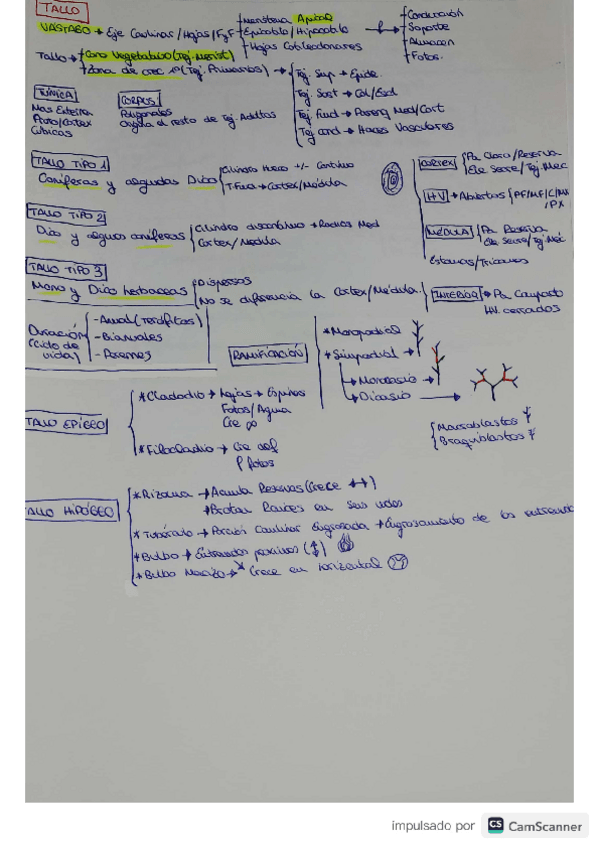 TALLO
VASTAGO → Eje Caulinar / Hojas / F y F { Meristema Apical
Epicotilo / Hipocotilo
Hojas Cotiledonares
Conducción
Soporte
Almacen
Fotos.
Tallo → { Cono Vegetativo (Tej. Merist)
Zona de crec 1º (Tej. Primarios) → { Tej. Sup → Epide.
Tej. Sost → Col/Escl
Tej. Fund → Parenq Med/Cort
Tej cond → Haces Vasculares
TÚNICA
Mas Externa
Proto/Cortex
Cúbicas
CORPUS
Poligonales
Origina el resto de Tej. Adultos
TALLO TIPO 1
Coniferas y algunas Dico { Cilindro Hueco +/- Continuo
T. Fund → Cortex/Médula
TALLO TIPO 2
Dico y algunas coniferas { Cilindro discontinuo → Radios Med
Cortex/Medula
TALLO TIPO 3
Mono y Dico herbaceas { Dispersos
No se diferencia la Cortex/Medula.
CORTEX { Pa Cloro/Reserva
Ele Secre/Tej Mec
HV → Abiertos { PF/MF/C/MX
/PX
MÉDULA { Pa Reserva
Ele Secre/Tej Mec
Estomas/Tricomas
INTERIOR → Pa Compacto
HV cerrados
Duración
(ciclo de
vida)
- Anual (Terófitas)
- Bianuales
- Perennes
RAMIFICACIÓN
* Monopodial
* Simpodial →
→ Monocasio →
→ Dicasio →
TALLO EPÍGEO
* Cladodio → Hojas → Espinas
Fotos/Agua
Cre ∞
* Filocladio → Cre def
fotos
Macroblastos
Braquiblastos
TALLO HIPÓGEO
* Rizoma → Acumula Reservas (Crece ↔)
→ Brotan Raices en sus nudos
* Tubérculo → Porción Caulinar Engrosada → Engrosamiento de los entrenu
* Bulbo → Entrenudos proximos (↕)
* Bulbo Macizo → Crece en horizontal
impulsado por CS CamScanner